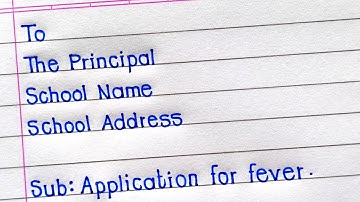 To
The Principal
School Name
School Address
Sub: Application for fever.